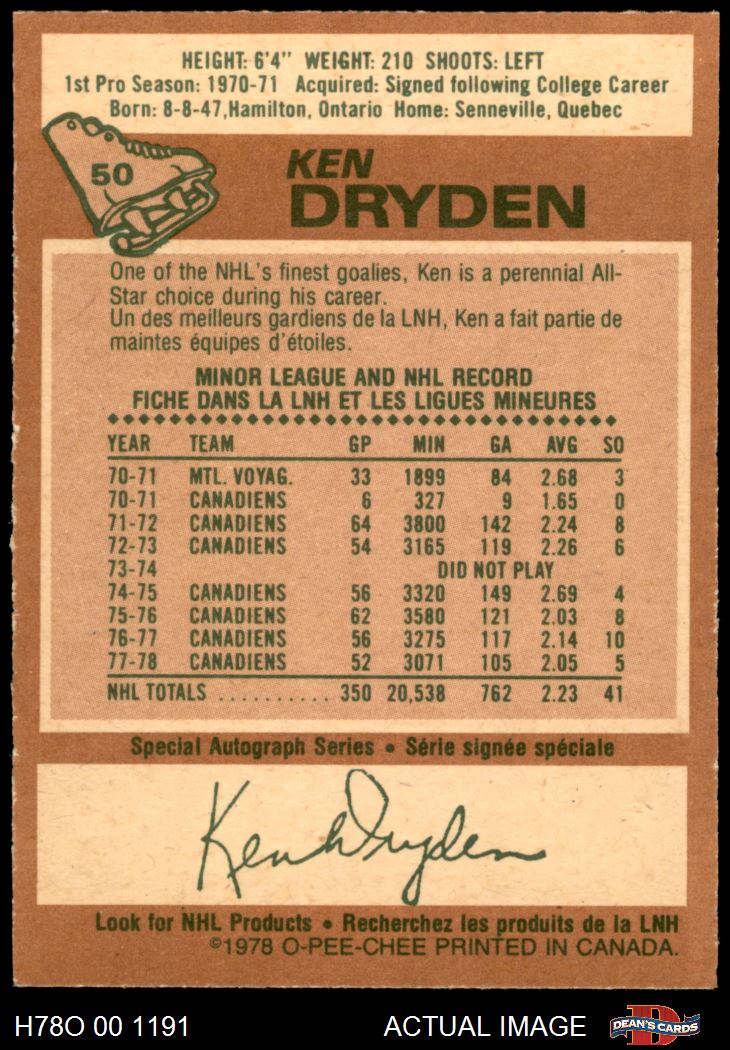 HEIGHT: 6'4" WEIGHT: 210 SHOOTS: LEFT
1st Pro Season: 1970-71 Acquired: Signed following College Career
Born: 8-8-47, Hamilton, Ontario Home: Senneville, Quebec
50
KEN
DRYDEN
One of the NHL's finest goalies, Ken is a perennial All-
Star choice during his career.
Un des meilleurs gardiens de la LNH, Ken a fait partie de
maintes équipes d'étoiles.
MINOR LEAGUE AND NHL RECORD
FICHE DANS LA LNH ET LES LIGUES MINEURES
YEAR TEAM GP MIN GA AVG SO
70-71 MTL. VOYAG. 33 1899 84 2.68 3
70-71 CANADIENS 6 327 9 1.65 0
71-72 CANADIENS 64 3800 142 2.24 8
72-73 CANADIENS 54 3165 119 2.26 6
73-74 DID NOT PLAY
74-75 CANADIENS 56 3320 149 2.69 4
75-76 CANADIENS 62 3580 121 2.03 8
76-77 CANADIENS 56 3275 117 2.14 10
77-78 CANADIENS 52 3071 105 2.05 5
NHL TOTALS .......... 350 20,538 762 2.23 41
Special Autograph Series • Série signée spéciale
Ken Dryden
Look for NHL Products • Recherchez les produits de la LNH
©1978 O-PEE-CHEE PRINTED IN CANADA.
H78O 00 1191 ACTUAL IMAGE D DEAN'S CARDS